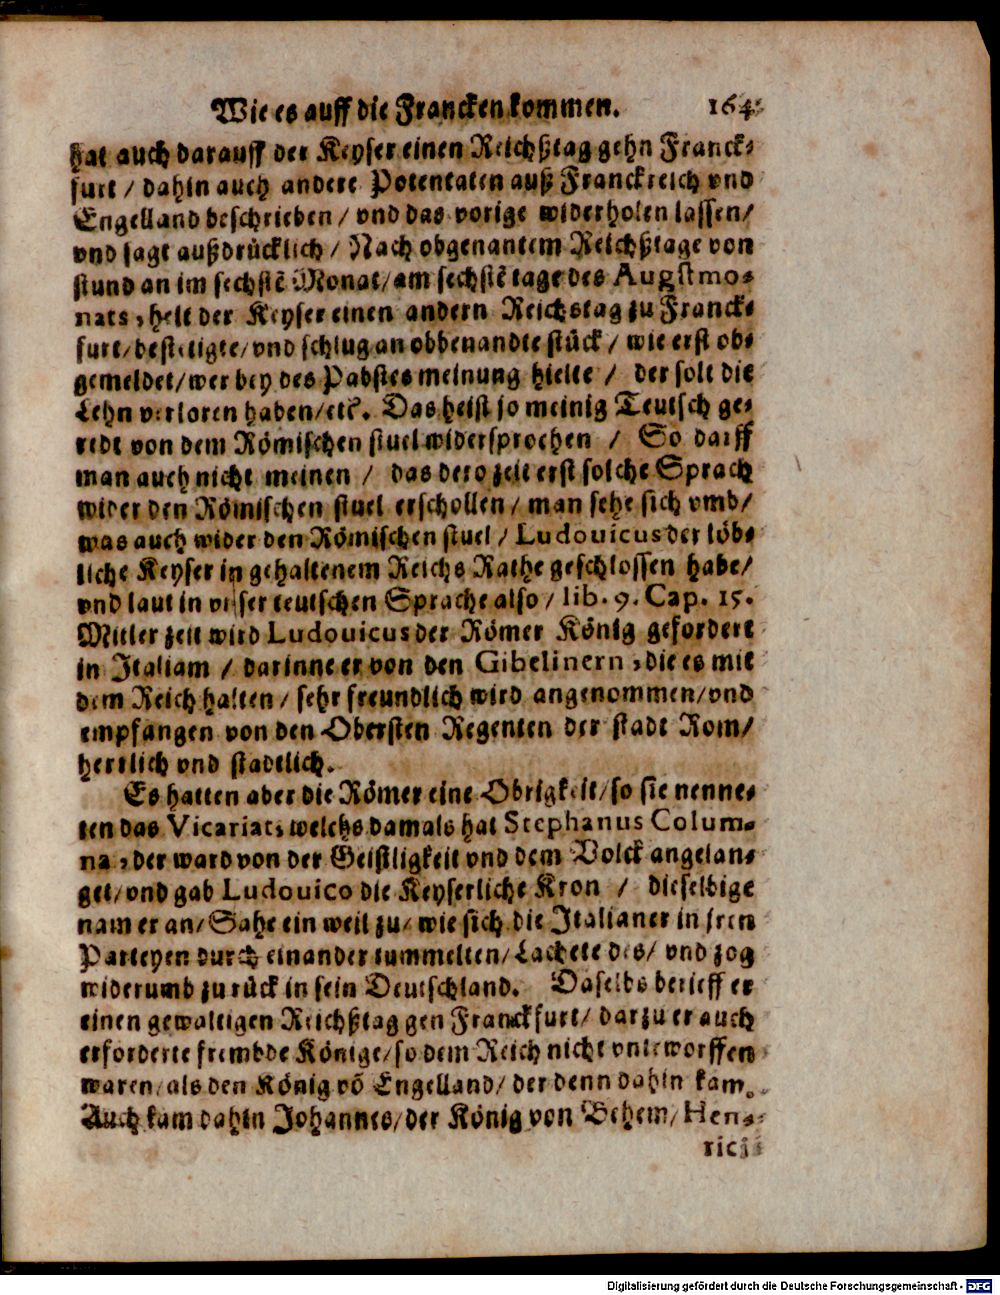 Wie es auff die Francken kommen. 164
hat auch darauff der Keyser einen Reichßtag gehn Franck-
furt / dahin auch andere Potentaten auß Franckreich vnd
Engelland beschrieben / vnd das vorige widerholen lassen /
vnd sagt außdrücklich / Nach obgenantem Reichßtage von
stund an im sechstẽ Monat / am sechstẽ tage des Augstmo-
nats, helt der Keyser einen andern Reichstag zu Franck-
furt / bestetigte / vnd schlug an obbenandte stück / wie erst ob-
gemeldet / wer bey des Pabstes meinung hielte / der solt die
Lehn verloren haben / etc. Das heist jo meinig Teutsch ge-
redt von dem Römischen stuel widersprochen / So darff
man auch nicht meinen / das dero zeit erst solche Sprach
wider den Römischen stuel erschollen / man sehe sich vmb /
was auch wider den Römischen stuel / Ludouicus der löb-
liche Keyser in gehaltenem Reichs Rathe geschlossen habe /
vnd laut in vnser teutschen Sprache also / lib. 9. Cap. 15.
Mitler zeit wird Ludouicus der Römer König gefordert
in Italiam / darinne er von den Gibelinern, die es mit
dem Reich halten / sehr freundlich wird angenommen / vnd
empfangen von den Obersten Regenten der stadt Rom /
herrlich vnd stadtlich.
Es hatten aber die Römer eine Obrigkeit / so sie nenne-
ten das Vicariat, welchs damals hat Stephanus Colum-
na, der ward von der Geistligkeit vnd dem Volck angelan-
get / vnd gab Ludouico die Keyserliche Kron / dieselbige
nam er an / Sahe ein weil zu / wie sich die Italianer in jren
Parteyen durch einander tummelten / Lachete des / vnd zog
widerumb zu rück in sein Deutschland. Daselbs berieff er
einen gewaltigen Reichßtag gen Franckfurt / darzu er auch
erforderte frembde Könige / so dem Reich nicht vnterworffen
waren / als den König võ Engelland / der denn dahin kam.
Auch kam dahin Johannes / der König von Behem / Hen-
rici
Digitalisierung gefördert durch die Deutsche Forschungsgemeinschaft - DFG